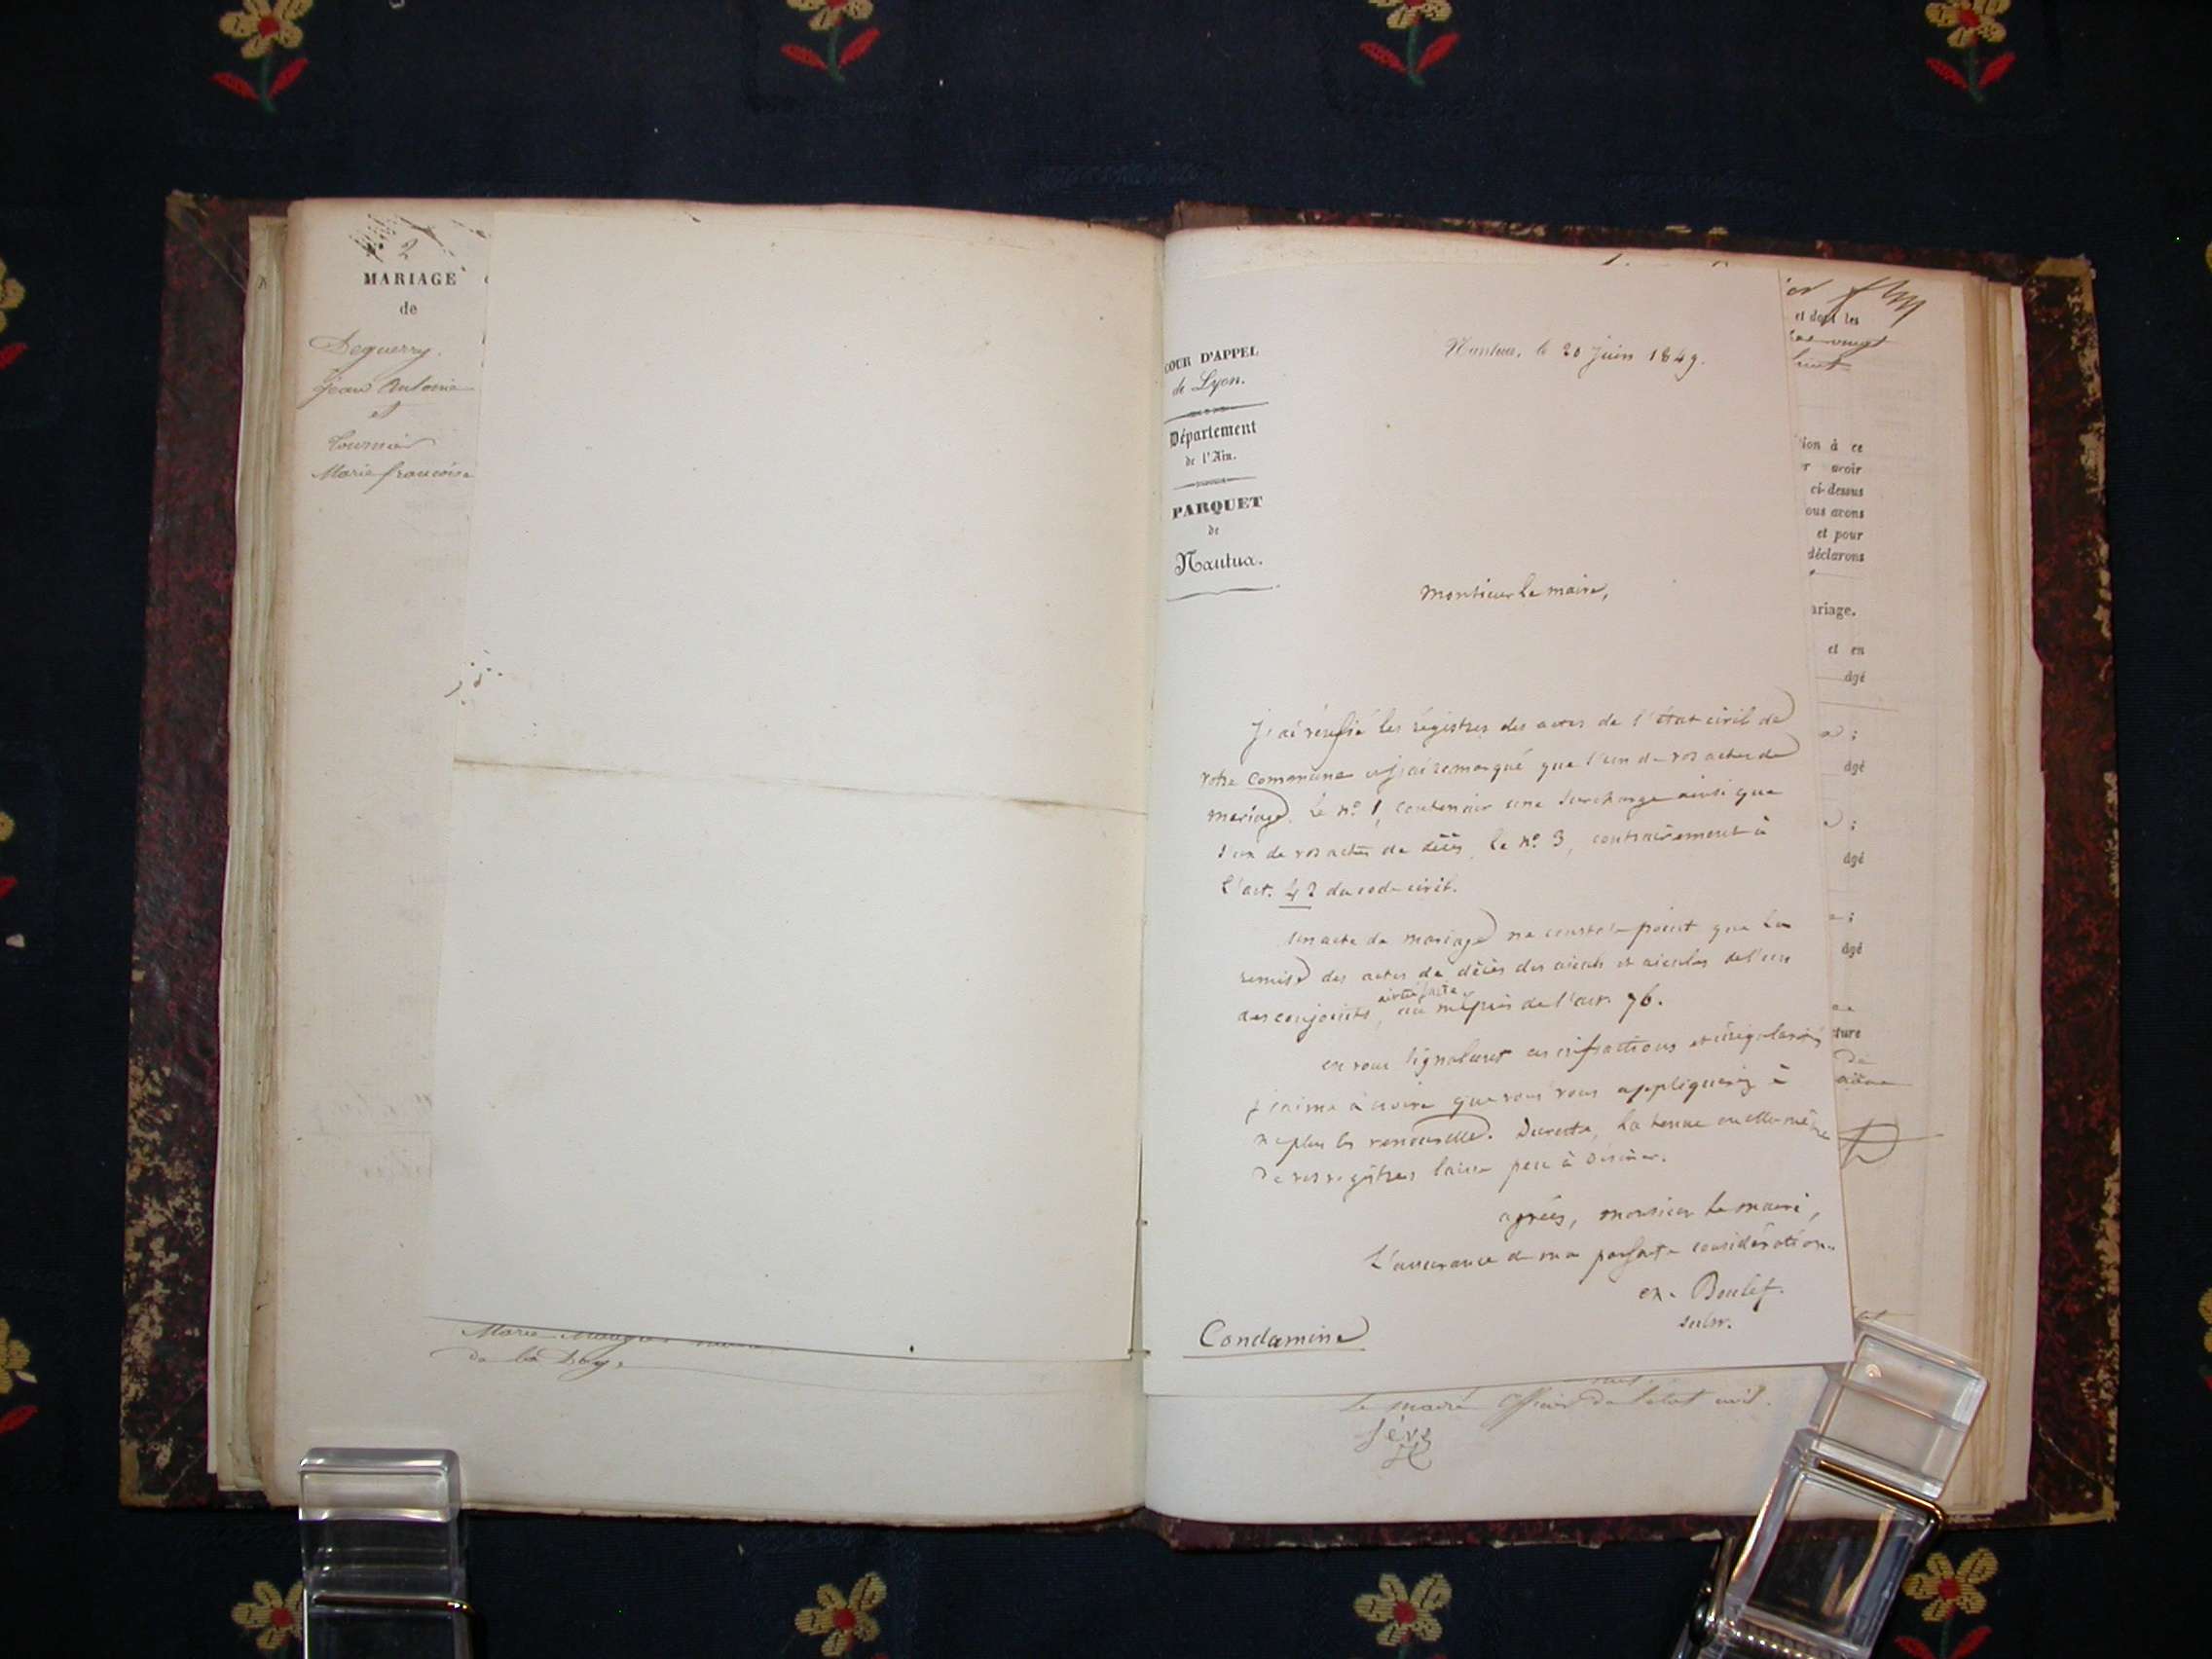 2
MARIAGE
de
Deguerry
jean Antoine
et
Tournier
Marie francoise
Marie
de la
COUR D'APPEL
de Lyon.
Département
de l'Ain.
PARQUET
de
Nantua.
Nantua, le 20 juin 1849.
Monsieur le maire,
j'ai vérifié les régistres des actes de l'état civil de
votre Commune et j'ai remarqué que l'un de vos actes de
mariage. Le nº 1, contenoir une surcharge ainsi que
l'un de vos actes de décès, le nº 3, contrairement à
l'art. 42 du code civil.
un acte de mariage ne constate point que la
remise des actes de décès des aieuls et aieules de l'un
des conjoints, ait été faite au mépris de l'art. 76.
en vous signalant ces infractions et irrégularités
j'aime à croire que vous vous appliquerez à
ne plus les renouveller. Du reste, la tenue en elle-même
de vos régistres laisse peu à désirer.
agréez, monsieur le maire,
L'assurance de ma parfaite considération.
subst.
Condamine
le maire officier de l'état civil.
et dont les
vingt
huit
tion à ce
r avoir
ci-dessus
ous avons
et pour
déclarons
ariage.
et en
âgé
;
âgé
;
âgé
;
âgé
cture